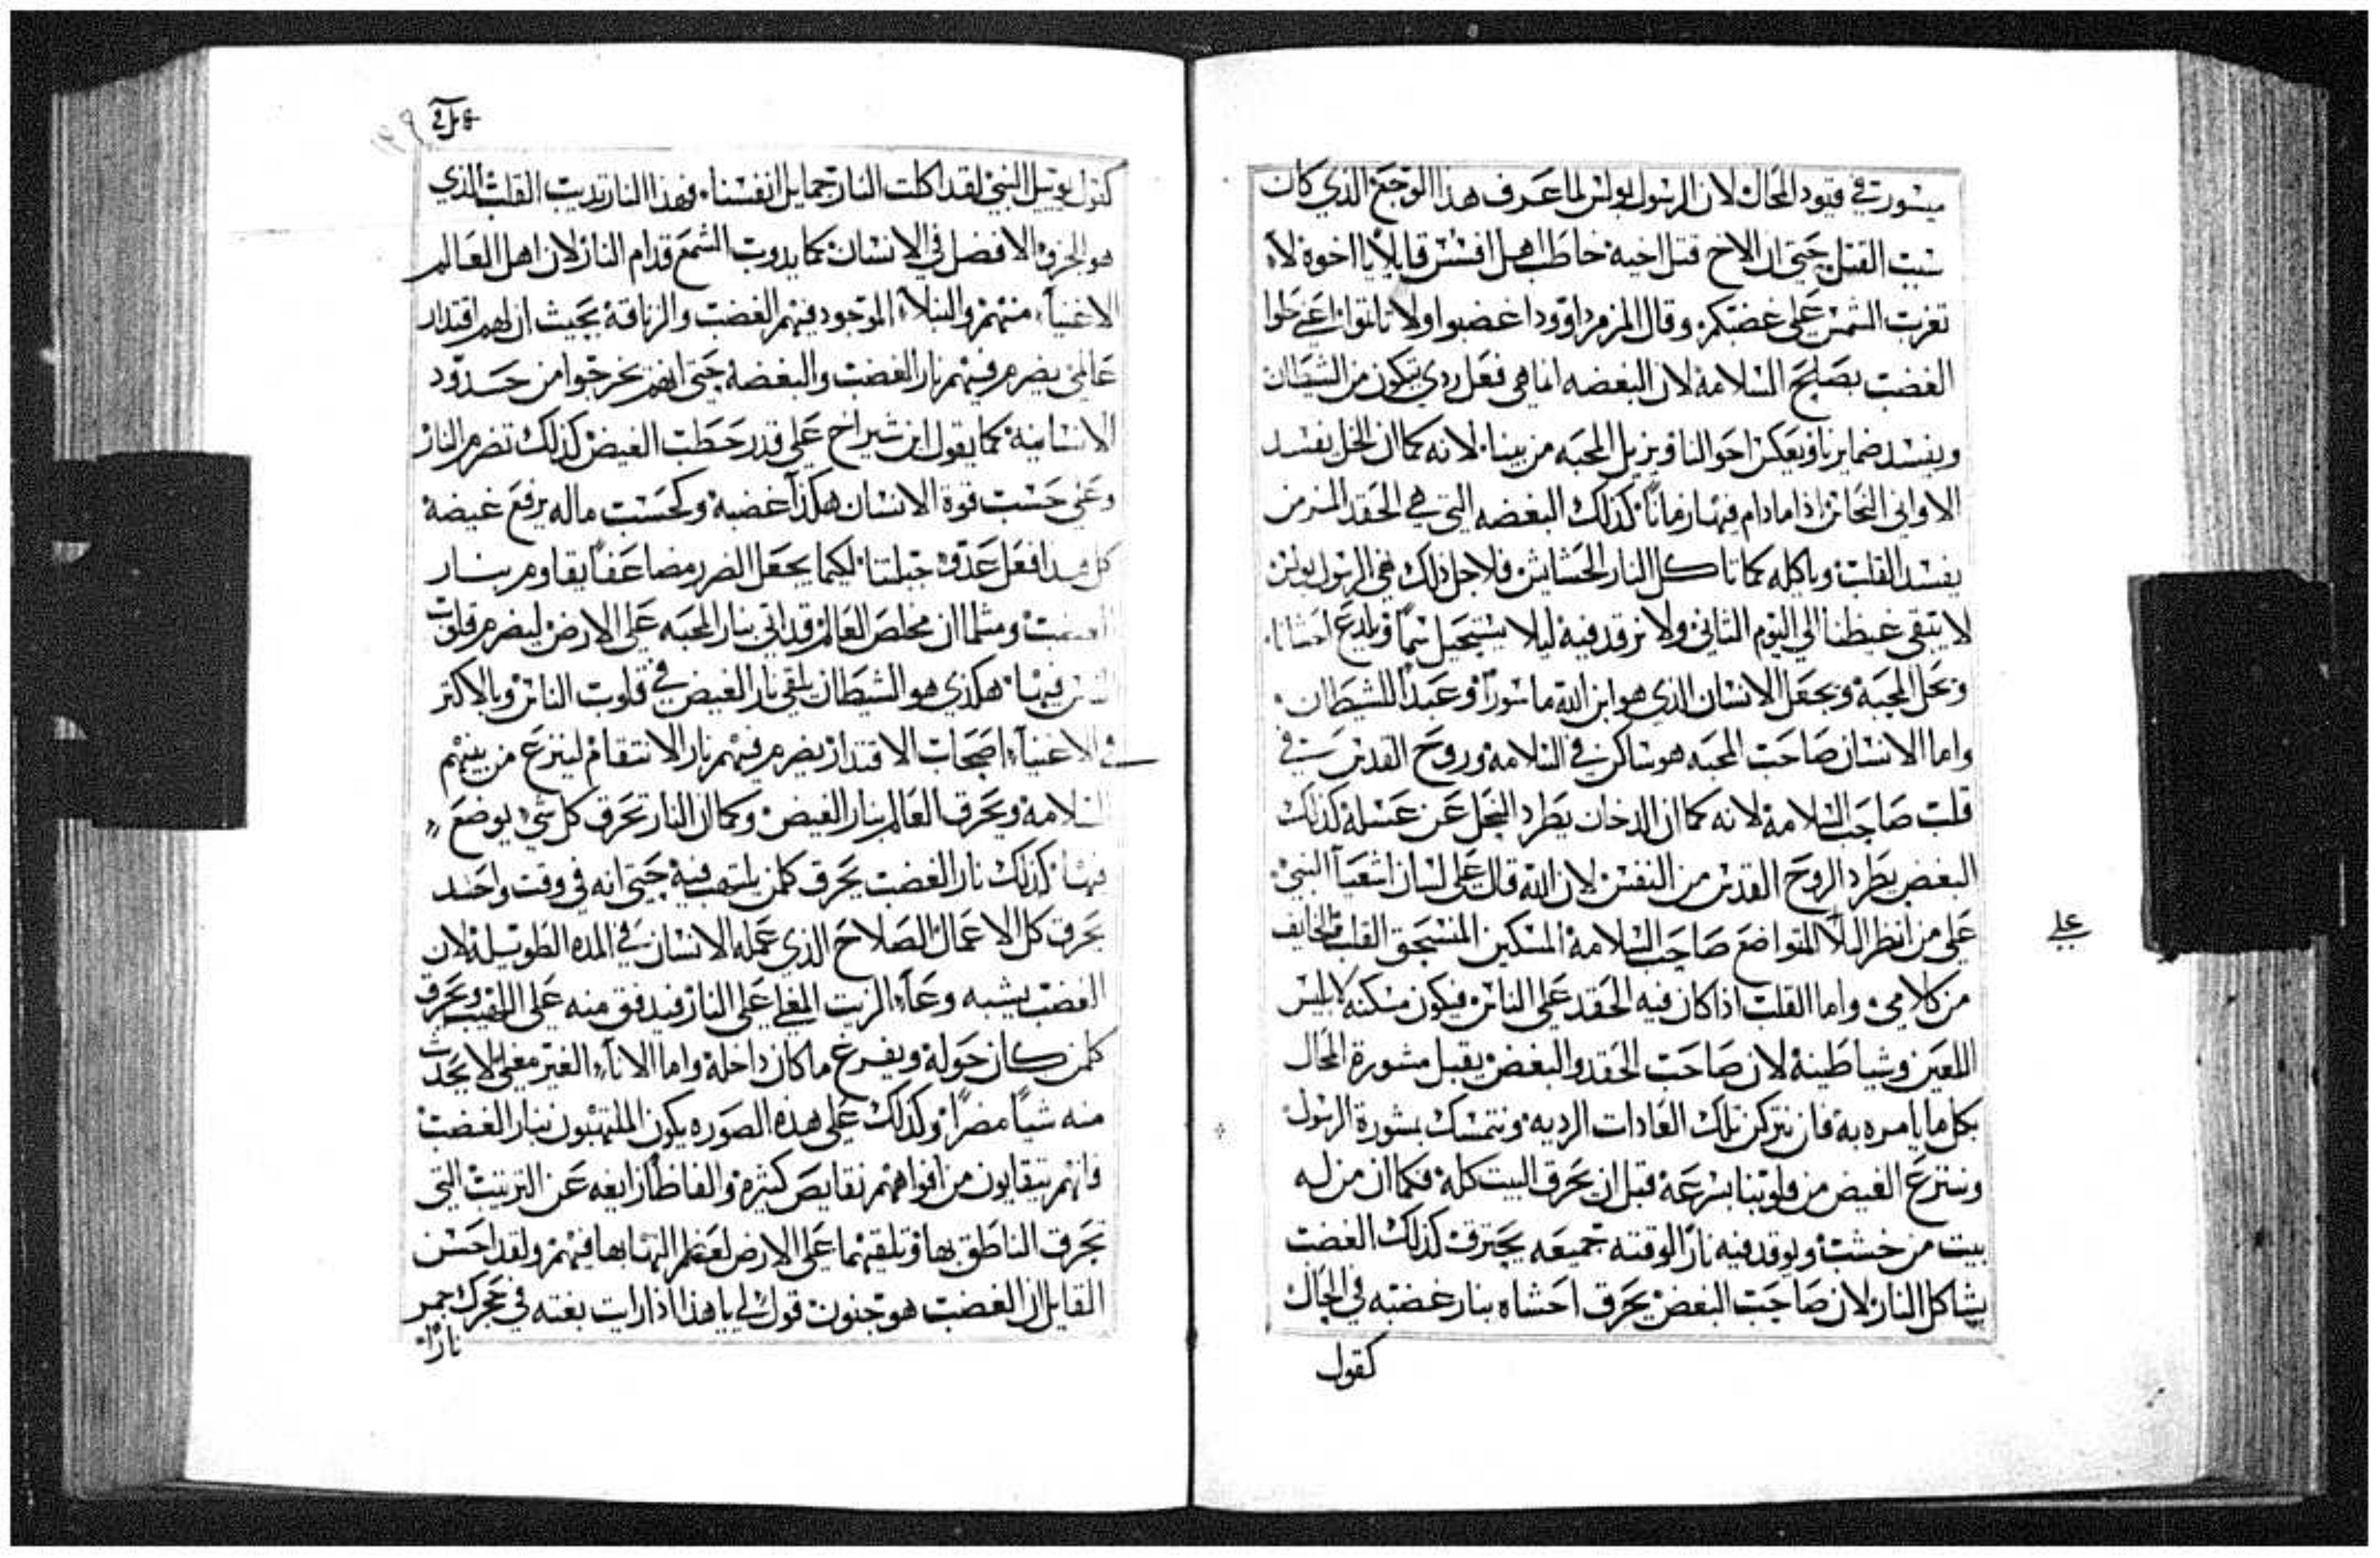 ميسورت في قيود المحال لان الرسول بولس لما عرف هذا الوجع الذي كان
سبب القتل حتي ان الاخ قتل اخيه خاطب اهل افسس قايلاً يا اخوة لا
تغرب الشمس علي غضبكم وقال المزمر داوود اغضبوا ولا تاثموا
الغضب بصلح السلامة لان البغضه انما هي فعل ردي تتكون من الشيطان
ويفسد ضمايرنا ويعكس احوالنا ويزيل المحبه من بيننا لانه كما ان الخل يفسد
الاواني النحاس اذا ما دام فيها زماناً كذلك البغضه التي هي الحقد المزمن
يفسد القلب وياكله كما تاكل النار الحشايش فلاجل ذلك نهي الرسول بولس
لا يبقي غيظنا الي اليوم الثاني ولا نرقد فيه ليلا يستحيل سماً ويلدغ احشانا
ويحل المحبة ويجعل الانسان الذي هو ابن الله ماسوراً وعبداً للشيطان
واما الانسان صاحب المحبه هو ساكن في السلامة وروح القدس في
قلب صاحب السلامة لانه كما ان الدخان يطرد النحل عن عسله كذلك
البغض يطرد الروح القدس من النفس لان الله قال علي لسان اشعيا النبي
علي من انظر الا المتواضع صاحب السلامة المسكين المنسحق القلب والخايف
علي
من كلامي واما القلب اذا كان فيه الحقد علي الناس فيكون مسكنه لابليس
اللعين وشياطينه لان صاحب الحقد والبغض يقبل مشورة المحال
بكل ما يامره به فان نتركن تلك العادات الرديه ونتمسك بمشورة الرسول
وننزع الغيض من قلوبنا بسرعة قبل ان يحرق البيت كله فكما ان من له
بيت من خشب ويوقد فيه ناراً لوقته جميعه يحترق كذلك الغضب
يشاكل النار لان صاحب البغض يحرق احشاه بنار غضبه في الحال
كقول
كقول يوييل النبي لقد اكلت النار جمايل انفسنا فهذا النار تديب القلب الذي
هو الجزو الافضل في الانسان كما يدوب الشمع قدام النار لان اهل العالم
الاغنياء منهم والنبلاء الموجود فيهم الغضب والزناقة بحيث ان لهم اقتدار
عالمي يضرم فيهم نار الغضب والبغضه حتي انهم يخرجوا من حدود
الانسانية كما يقول ابن شيراخ علي قدر حطب الغيض كذلك تضرم النار
وعلي حسب قوة الانسان هكذا غضبه وكحسب ماله يرفع غيضه
كل هدا فعل عدو جبلتنا لكيما يجعل الضرر مضاعفاً يقاوم بنار
ومثلما ان مخلص العالم قد اتي بنار المحبه علي الارض ليضرم قلوب
فيها هكذي هو الشيطان يلقي نار الغيض في قلوب الناس وبالاكتر
في الاغنياء اصحاب الاقتدار يضرم فيهم نار الانتقام لينزع من بينهم
السلامة ويحرق العالم بنار الغيض وكما ان النار تحرق كل شي يوضع
فيها كذلك نار الغضب يحرق كلمن يلتهب فيه حتي انه في وقت واحد
يحرق كل الاعمال الصلاح الذي عمله الانسان في المده الطويله لان
الغضب يشبه وعاء الزيت المغلي علي النار فيدفق منه علي اللهيب ويحرق
كلمن كان حوله ويفرغ ما كان داخله واما الاناء الغير مغلي لا يحدث
منه شياً مضراً وكذلك علي هذه الصوره يكون الملتهبون بنار الغضب
فانهم يتقايون من افواههم نقايص كثيره والفاظاً زايغه عن الترتيب التي
تحرق الناطق بها وتلقيهما علي الارض لعظم التهابها فيهم ولقد احسن
القايل ان الغضب هو جنون قول لي يا هذا اذا رايت بغته في حجرك جمر
ناراً